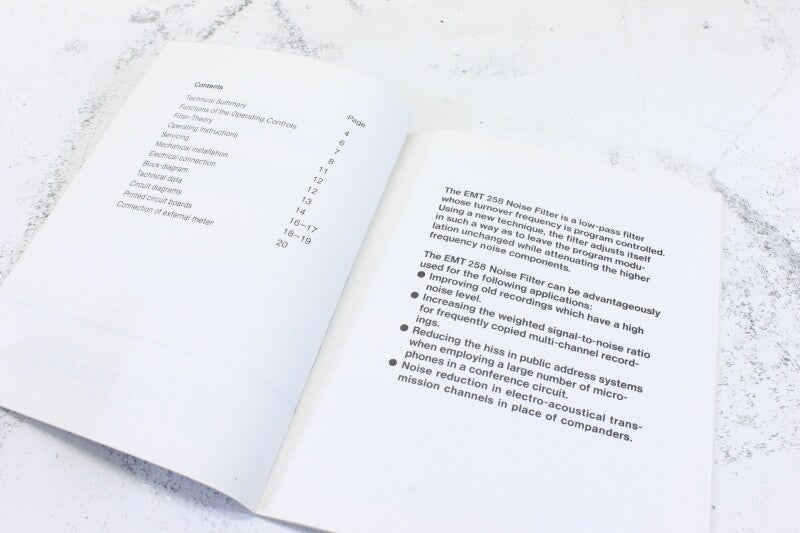 Contents
Page
Technical Summary 4
Functions of the Operating Controls 6
Filter-Theory 7
Operating Instructions 8
Servicing 11
Mechanical installation 12
Electrical connection 12
Block-diagram 13
Technical data 14
Circuit diagrams 16–17
Printed circuit boards 18–19
Connection of external meter 20
The EMT 258 Noise Filter is a low-pass filter
whose turnover frequency is program controlled.
Using a new technique, the filter adjusts itself
in such a way as to leave the program modu-
lation unchanged while attenuating the higher
frequency noise components.
The EMT 258 Noise Filter can be advantageously
used for the following applications:
● Improving old recordings which have a high
noise level.
● Increasing the weighted signal-to-noise ratio
for frequently copied multi-channel record-
ings.
● Reducing the hiss in public address systems
when employing a large number of micro-
phones in a conference circuit.
● Noise reduction in electro-acoustical trans-
mission channels in place of companders.